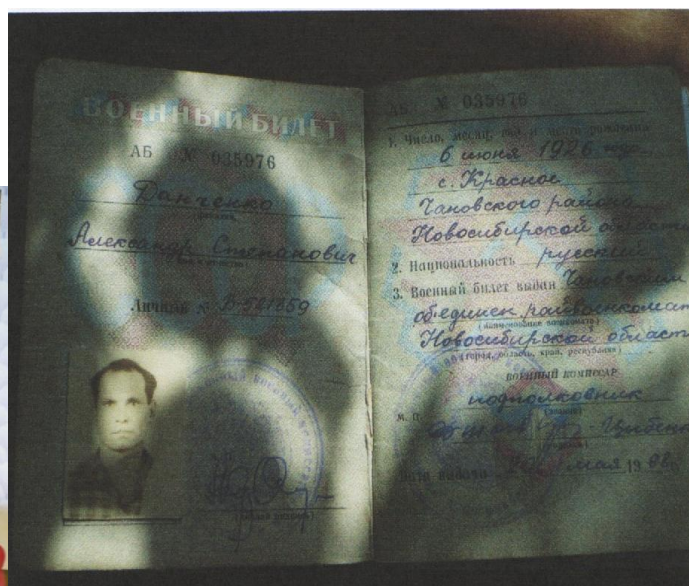 ВОЕННЫЙ БИЛЕТ
АБ № 035976
Данченко
Александр Степанович
Личный № В-521659
М. П.
АБ № 035976
1. Число, месяц, год и место рождения
6 июня 1926 года
с. Красное
Чановского района
Новосибирской области
2. Национальность русский
3. Военный билет выдан Чановским
объединен. райвоенкомат
(наименование военкомата)
Новосибирской област
(город, область, край, республика)
ВОЕННЫЙ КОМИССАР
подполковник
(звание)
Дата выдачи мая 19